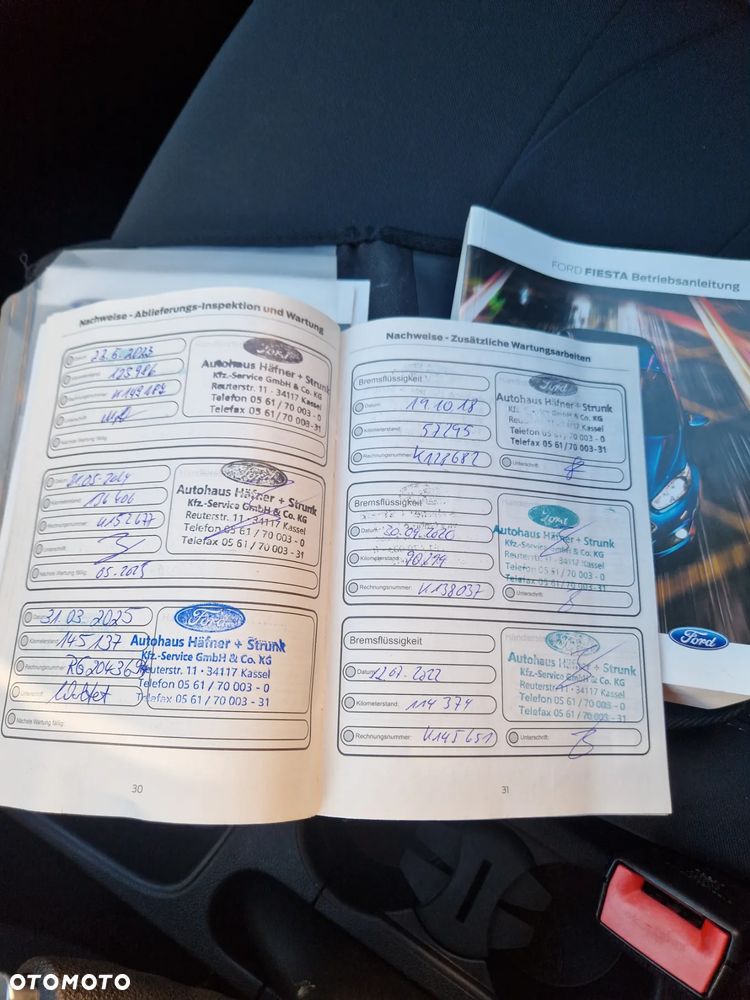 FORD FIESTA Betriebsanleitung
Ford
Nachweise - Ablieferungs-Inspektion und Wartung
Datum:
Ford
Autohaus Häfner + Strunk
Kfz.-Service GmbH & Co. KG
Reuterstr. 11 - 34117 Kassel
Telefon 05 61 / 70 003 - 0
Telefax 05 61 / 70 003 - 31
Rechnungsnummer: K149189
Unterschrift:
Nächste Wartung fällig:
Datum: 21.05.2024
Ford
Autohaus Häfner + Strunk
Kfz.-Service GmbH & Co. KG
Reuterstr. 11 - 34117 Kassel
Telefon 05 61 / 70 003 - 0
Telefax 05 61 / 70 003 - 31
Kilometerstand: 136 406
Rechnungsnummer: K152677
Unterschrift:
Nächste Wartung fällig: 05.2025
Datum: 31.03.2025
Ford
Autohaus Häfner + Strunk
Kfz.-Service GmbH & Co. KG
Reuterstr. 11 - 34117 Kassel
Telefon 05 61 / 70 003 - 0
Telefax 05 61 / 70 003 - 31
Kilometerstand: 145 137
Rechnungsnummer: RG204369
Unterschrift:
Nächste Wartung fällig:
30
Nachweise - Zusätzliche Wartungsarbeiten
Bremsflüssigkeit
Ford
Autohaus Häfner + Strunk
Kfz.-Service GmbH & Co. KG
Reuterstr. 11 - 34117 Kassel
Telefon 05 61 / 70 003 - 0
Telefax 05 61 / 70 003 - 31
Datum: 19.10.18
Kilometerstand: 57295
Rechnungsnummer: K128682
Unterschrift:
Bremsflüssigkeit
Ford
Autohaus Häfner + Strunk
Kfz.-Service GmbH & Co. KG
Reuterstr. 11 - 34117 Kassel
Telefon 05 61 / 70 003 - 0
Telefax 05 61 / 70 003 - 31
Datum: 30.09.2020
Kilometerstand:
Rechnungsnummer: K138037
Unterschrift:
Bremsflüssigkeit
Ford
Autohaus Häfner + Strunk
Kfz.-Service GmbH & Co. KG
Reuterstr. 11 - 34117 Kassel
Telefon 05 61 / 70 003 - 0
Telefax 05 61 / 70 003 - 31
Datum: 12.07.2022
Kilometerstand: 114 374
Rechnungsnummer: K145651
Unterschrift:
31
OTOMOTO